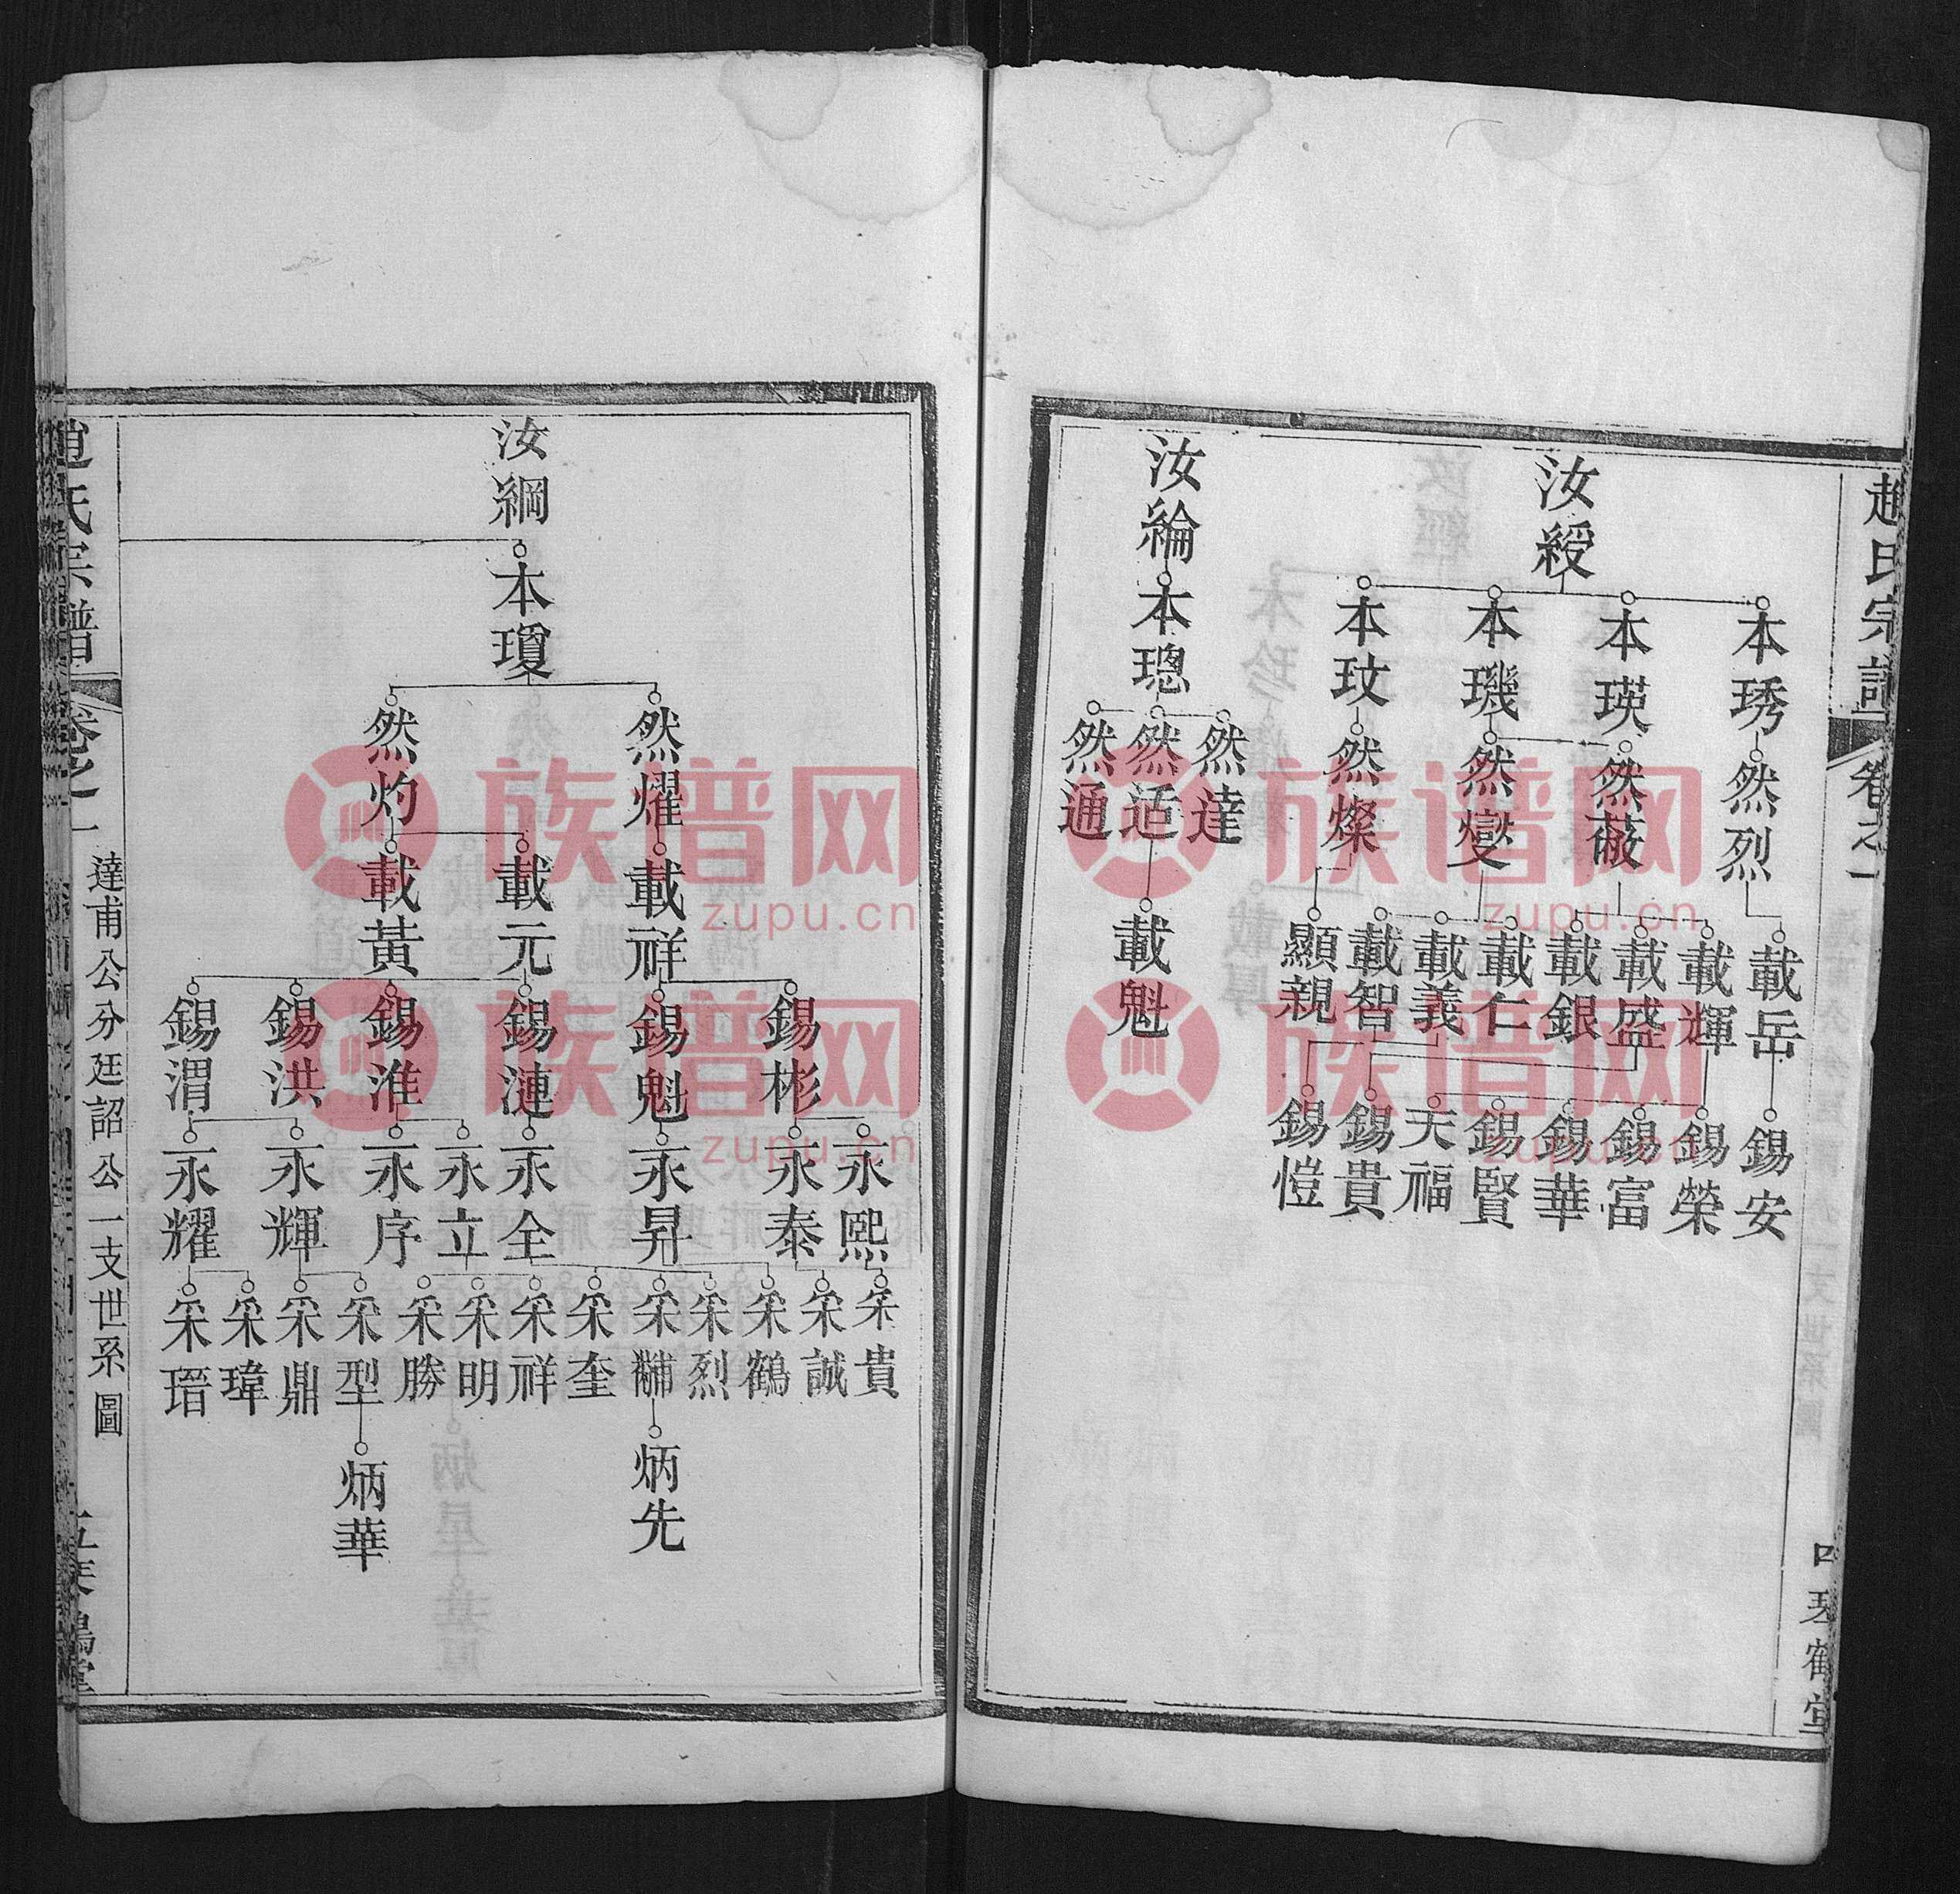 趙氏宗譜
卷之一
四
琴鶴堂
汝綬
本琇
本瑛
本璣
本玟
然烈
然薇
然燮
然燦
載岳
載輝
載盛
載銀
載仁
載義
載智
顯親
錫安
錫榮
錫富
錫華
錫賢
天福
錫貴
錫愷
汝綸
本璁
然達
然适
然通
載魁
汝綱
本瓊
然燿
然灼
載祥
載元
載黃
錫彬
錫魁
錫漣
錫淮
錫洪
錫渭
永熙
永泰
永昇
永全
永立
永序
永輝
永耀
采貴
采誠
采鶴
采烈
采黼
采奎
采祥
采明
采勝
采型
采鼎
采瑋
采瑨
炳先
炳華
趙氏宗譜
卷之一
達甫公分廷詔公一支世系圖
五
琴鶴堂
族谱网
zupu.cn
族谱网
zupu.cn
族谱网
zupu.cn
族谱网
zupu.cn